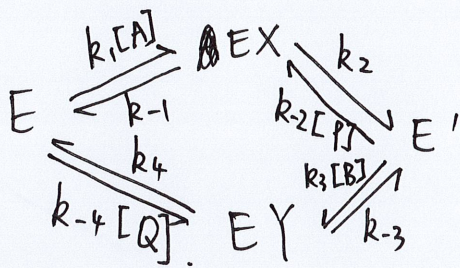 k₁[A] EX k₂
E k-1 k-2[P] E'
k4 k3[B]
k-4[Q]. EY k-3